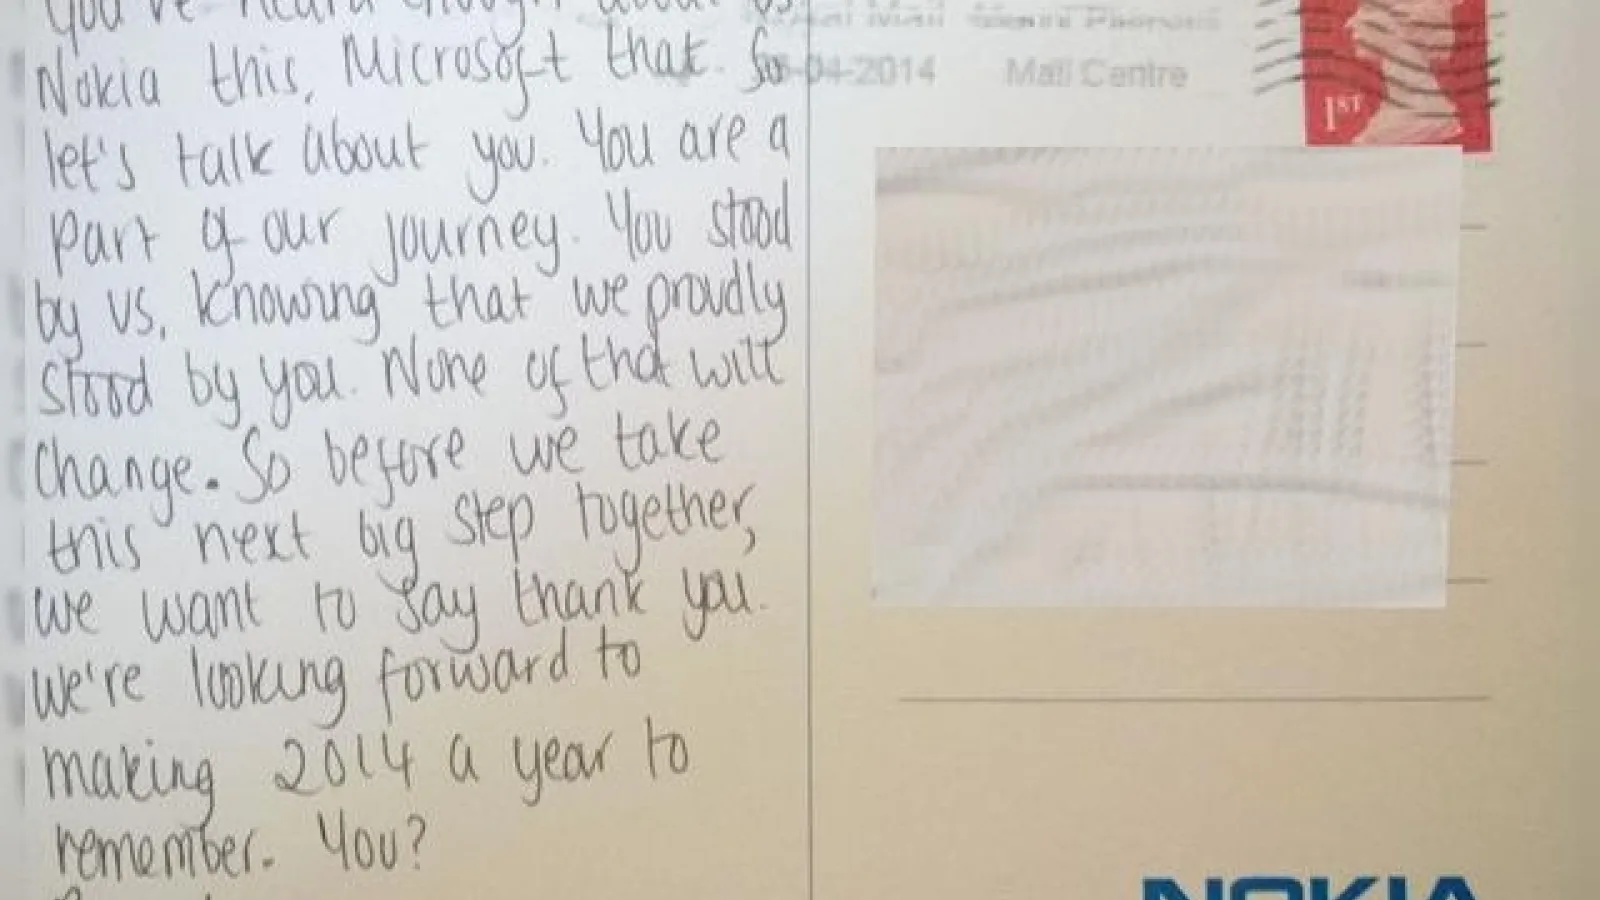 You've heard enough about us.
Nokia this, Microsoft that. So
let's talk about you. You are a
part of our journey. You stood
by us, knowing that we proudly
stood by you. None of that will
change. So before we take
this next big step together,
we want to say thank you.
We're looking forward to
making 2014 a year to
remember. You?
Royal Mail
-04-2014 Mail Centre
1ST
NOKIA